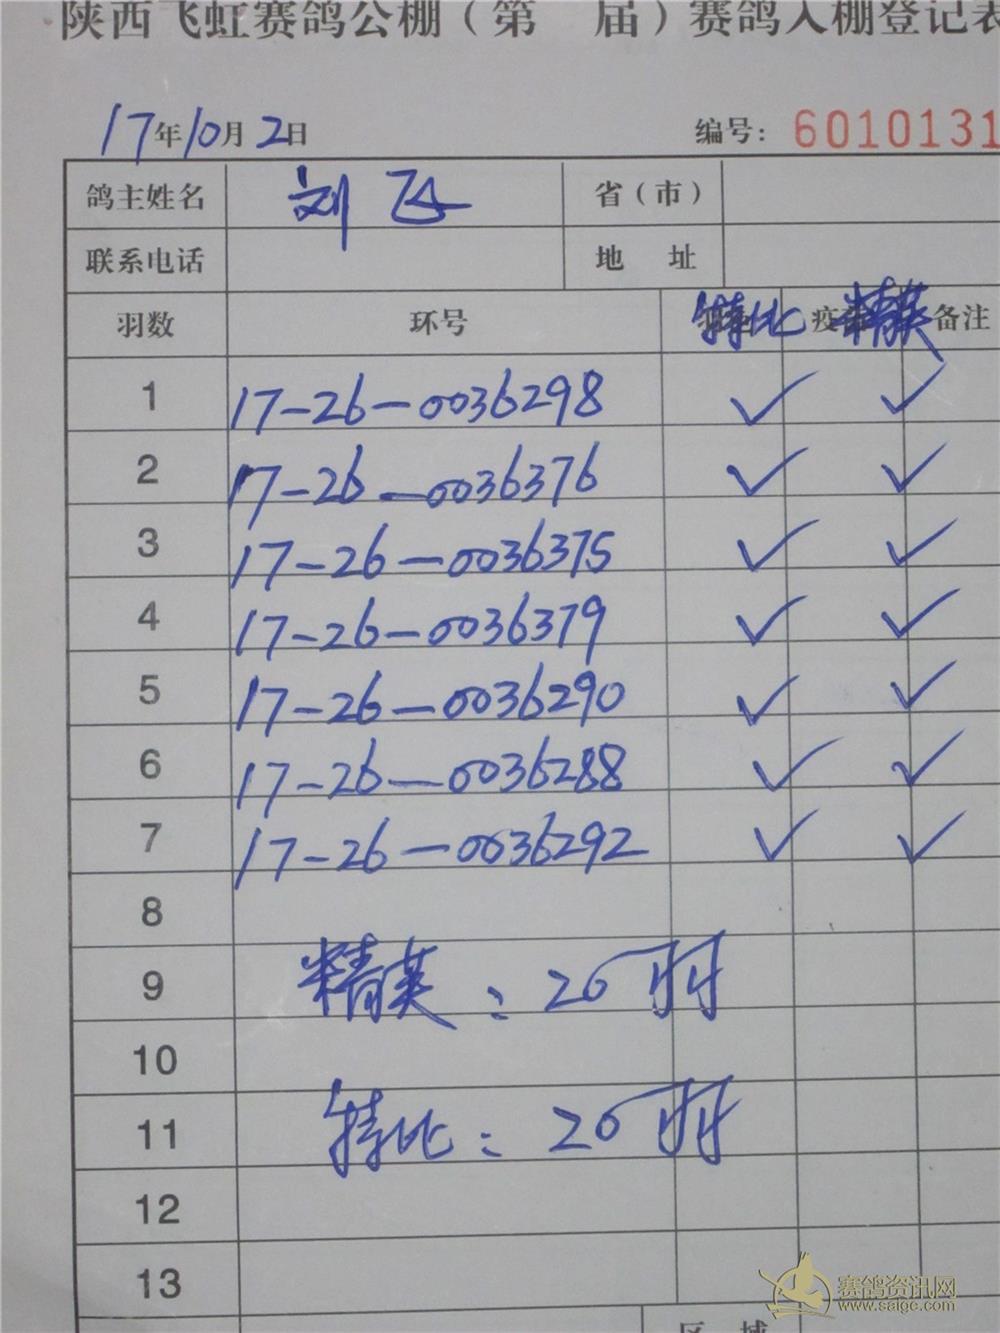 陕西飞虹赛鸽公棚（第 届）赛鸽入棚登记表
17年10月2日 编号: 6010131
鸽主姓名 刘飞 省（市）
联系电话 地 址
羽数 环号 特比 疫 精英 备注
1 17-26-0036298 ✓ ✓
2 17-26-0036376 ✓ ✓
3 17-26-0036375 ✓ ✓
4 17-26-0036379 ✓ ✓
5 17-26-0036290 ✓ ✓
6 17-26-0036288 ✓ ✓
7 17-26-0036292 ✓ ✓
8
9 精英: 20羽
10
11 特比: 20羽
12
13
区 域
赛鸽资讯网
www.saigc.com